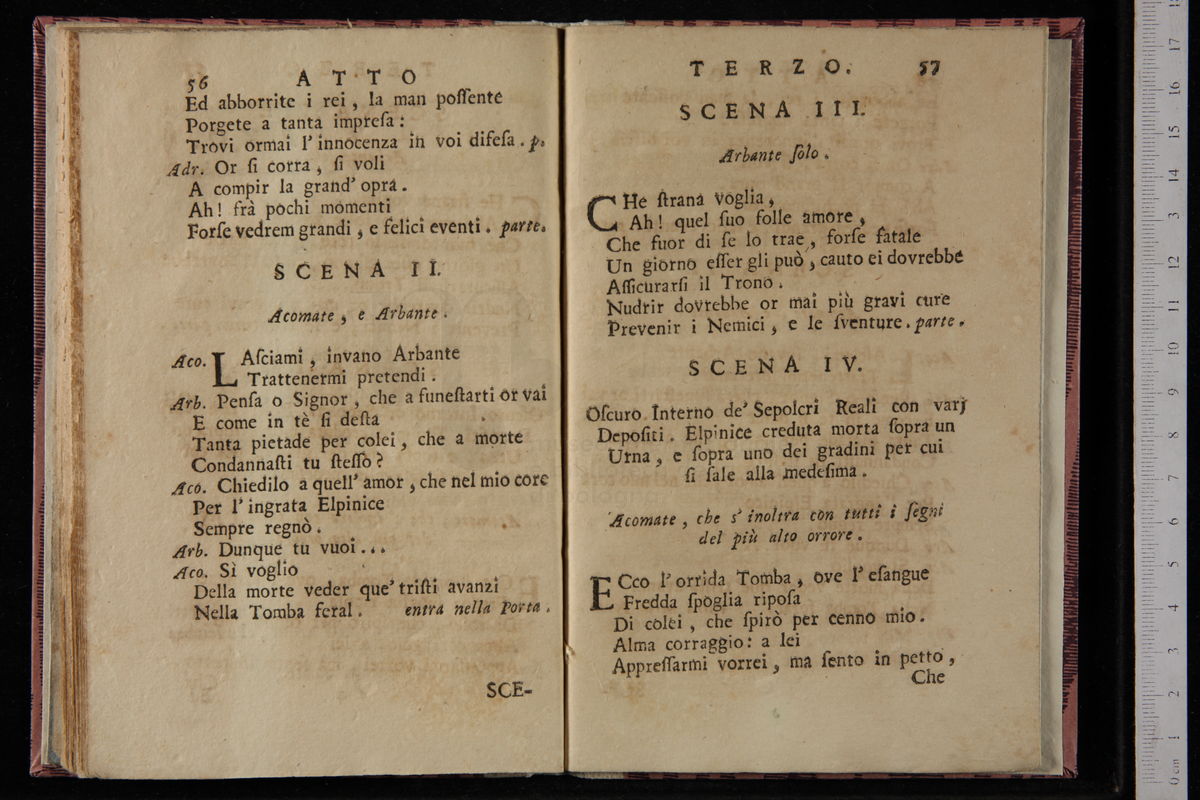 56 ATTO
Ed abborrite i rei, la man poſſente
Porgete a tanta impreſa:
Trovi ormai l'innocenza in voi difeſa. p.
Adr. Or ſi corra, ſi voli
A compir la grand' opra.
Ah! frà pochi momenti
Forſe vedrem grandi, e felici eventi. parte.
SCENA II.
Acomate, e Arbante.
Aco. LAſciami, invano Arbante
Trattenermi pretendi.
Arb. Penſa o Signor, che a funeſtarti or vai
E come in tè ſi deſta
Tanta pietade per colei, che a morte
Condannaſti tu ſteſſo?
Aco. Chiedilo a quell' amor, che nel mio core
Per l'ingrata Elpinice
Sempre regnò.
Arb. Dunque tu vuoi...
Aco. Sì voglio
Della morte veder que' triſti avanzi
Nella Tomba feral. entra nella Porta.
SCE-
TERZO. 57
SCENA III.
Arbante ſolo.
CHe ſtrana voglia,
Ah! quel ſuo folle amore,
Che fuor di ſe lo trae, forſe fatale
Un giorno eſſer gli può, cauto ei dovrebbe
Aſſicurarſi il Trono.
Nudrir dovrebbe or mai più gravi cure
Prevenir i Nemici, e le ſventure. parte.
SCENA IV.
Oſcuro Interno de' Sepolcri Reali con varj
Depoſiti. Elpinice creduta morta ſopra un
Urna, e ſopra uno dei gradini per cui
ſi ſale alla medeſima.
Acomate, che s' inoltra con tutti i ſegni
del più alto orrore.
ECco l'orrida Tomba, ove l'eſangue
Fredda ſpoglia ripoſa
Di colei, che ſpirò per cenno mio.
Alma corraggio: a lei
Appreſſarmi vorrei, ma ſento in petto,
Che